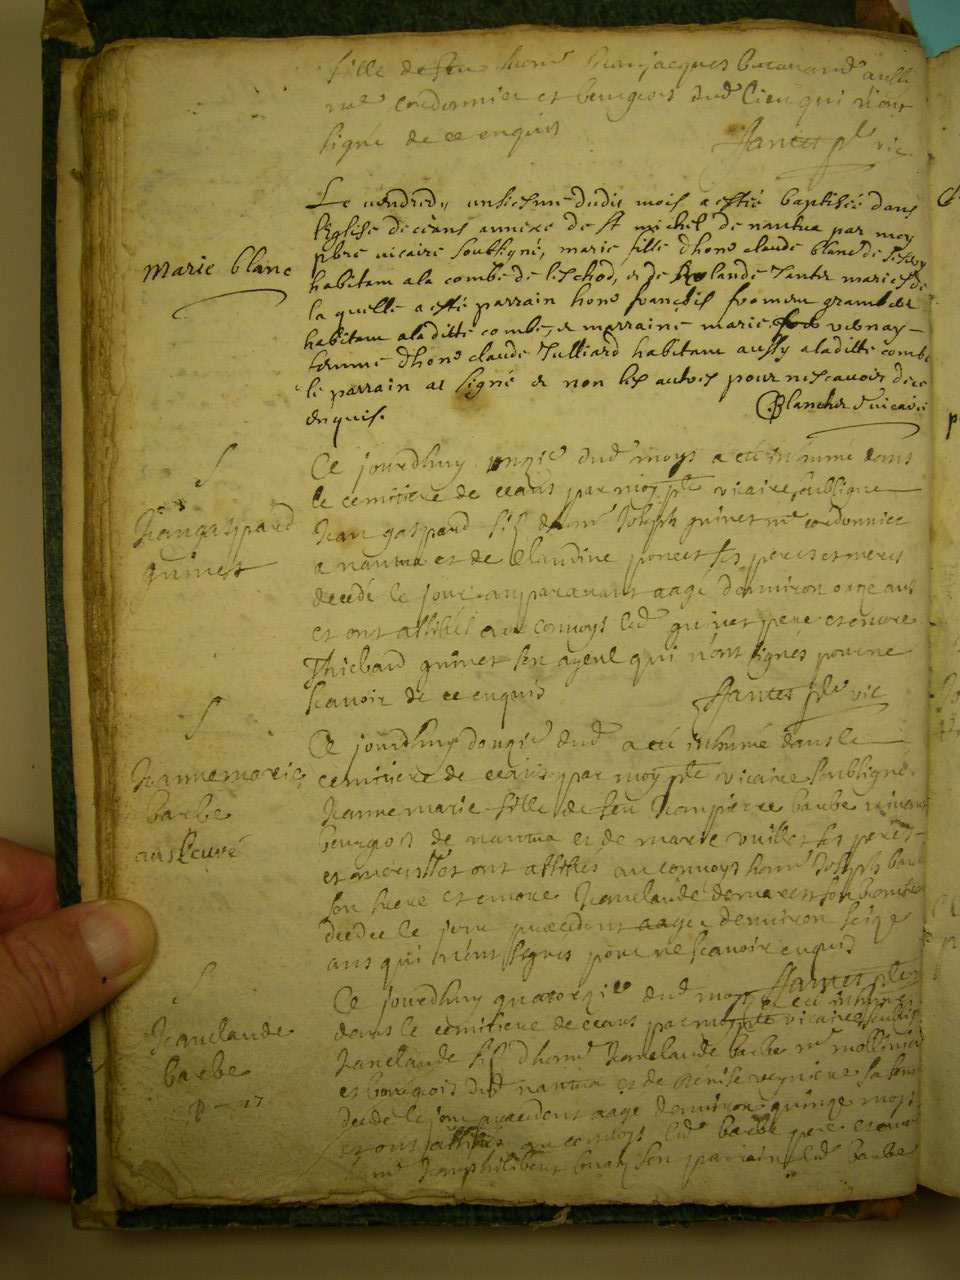 fille de feu honn^r Jeanjacques
m^e cordonnier et bourgeois dud^t lieu qui n'ont
signé de ce enquis
Jantet p^bre vic.
Le vendredy unsiesme dudit mois a esté baptisée dans
l'Église de céans annexe de St michel de nantua par moy
pbre vicaire soubsigné, marie fille d'hone claude blanc de
marie blanc
habitam a la combe de leschod, & de Jantet mariés de
la quelle a esté parrain hone francois
habitam a la ditte combe, & marraine marie vuenay
femme d'hone claude Julliard habitam aussy a la ditte combe
le parrain at signé & non les autres pour ne scavoir de ce
enquis.
Blanchet vicaire
Ce jourdhuy onzie^e dud^t moys a eté inhumé dans
le cemitiere de ceans par moy p^bre vicaire soubsigné
Jeangaspard
Jean gaspard fils de hon^r Joseph guinet m^e cordonnier
guinet
a nantua et de Claudine poncet ses peres et meres
decédé le jour auparavant aagé denviron onze ans
et ont assistés au convoys led^t guinet pere et encore
Thiebaud guinet son ayeul qui n'ont signés pour ne
scavoir de ce enquis
Jantet p^bre vic
Ce jourdhuy douzie^e dud^t a eté inhumé dans le
Jeannemarie
cemitiere de ceans par moy p^bre vicaire soubsigné
barbe
Jeanne marie fille de feu Jeanpierre barbe vivant
bourgois de nantua et de marie vuillet ses peres
et meres et ont assistés au convoys honn^r Joseph barbe
son frere et encore Jeanclaude
decdee le jour precedent aagee denviron seize
ans qui n'ont signes pour ne scavoir enquis
Jantet p^bre vic
Ce jourdhuy quatorzie^e dud^t moys a eté inhumé
dans le cemitiere de ceans par moy p^bre vicaire soubsig
Jeanclaude
Janclaude fils d'honn^r Jeanclaude barbe m^e
barbe
et bourgois dud^t nantua et de Denise reyniere sa fem
decde le jour precedent aage denviron quinze moys
et ont assistés au convoys led^t barbe pere et encore
Jeanphilibert son parrain led^t barbe